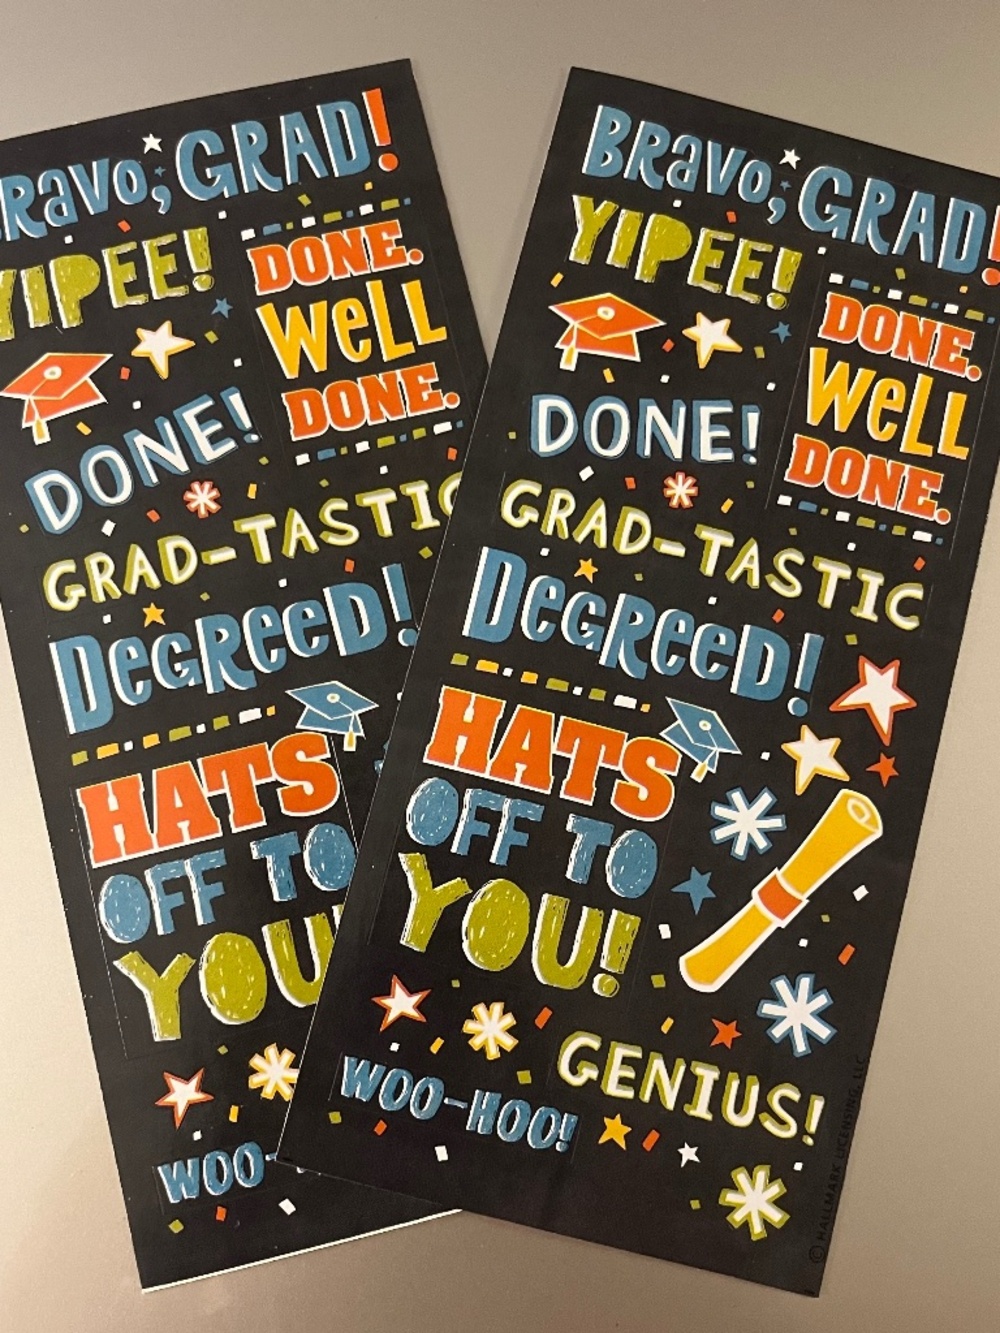 Bravo, GRAD!
YIPEE!
DONE.
WeLL
DONE.
DONE!
GRAD-TASTIC
DeGReeD!
HATS
OFF TO
YOU!
WOO-
BRavo, GRAD!
YIPEE!
DONE.
WeLL
DONE.
DONE!
GRAD-TASTIC
DeGReeD!
HATS
OFF TO
YOU!
GENIUS!
WOO-HOO!
© HALLMARK LICENSING, LLC